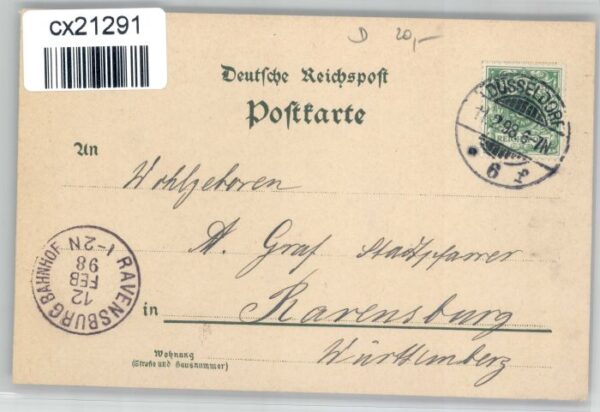 cx21291
D 20,-
Deutsche Reichspost
Postkarte
DÜSSELDORF
11.2.98 6-7N
6 f
An
Wohlgeboren
A. Graf Stadtpfarrer
in Ravensburg
Württemberg
RAVENSBURG BAHNHOF
12
FEB
98
1-2N
Wohnung
(Straße und Hausnummer)